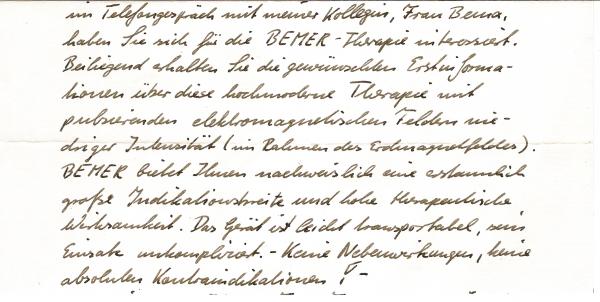 im Telefongespräch mit meiner Kollegin, Frau Bema,
haben Sie sich für die BEMER-Therapie interessiert.
Beiliegend erhalten Sie die gewünschten Erstinforma-
tionen über diese hochmoderne Therapie mit
pulsierenden elektromagnetischen Feldern nie-
driger Intensität (im Rahmen des Erdmagnetfeldes).
BEMER bietet Ihnen nachweislich eine erstaunlich
große Indikationsbreite und hohe therapeutische
Wirksamkeit. Das Gerät ist leicht transportabel, sein
Einsatz unkompliziert. - Keine Nebenwirkungen, keine
absoluten Kontraindikationen! -